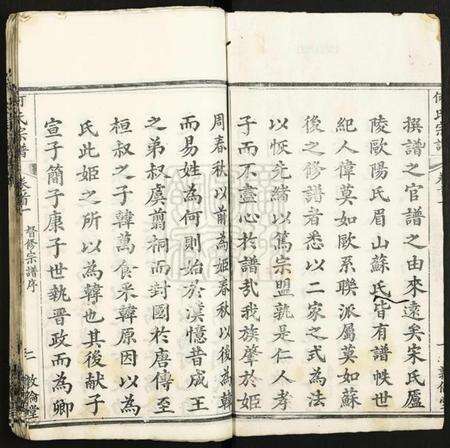 何氏宗譜
撰譜之官譜之由來遠矣宋氏廬
陵歐陽氏眉山蘇氏皆有譜帙世
紀人偉莫如歐系聯派屬莫如蘇
後之修譜者悉以二家之式為法
以恢先緒以篤宗盟孰是仁人孝
子而不盡心於譜哉我族肇於姬
周春秋以前為姬春秋以後為韓
而易姓為何則始於漢憶昔成王
之弟叔虞剪桐而封國於唐傳至
桓叔之子韓萬食采韓原因以為
氏此姬之所以為韓也其後獻子
宣子簡子康子世執晉政而為卿
何氏宗譜
卷首
督修宗譜序
二
敦倫堂